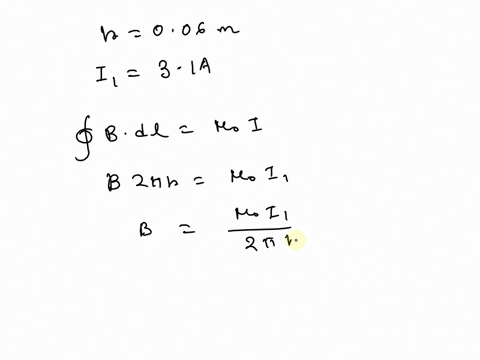 r = 0.06 m
I₁ = 3.1A
∮ B. dl = μ₀ I
B 2πr = μ₀ I₁
B = μ₀ I₁ / 2πr